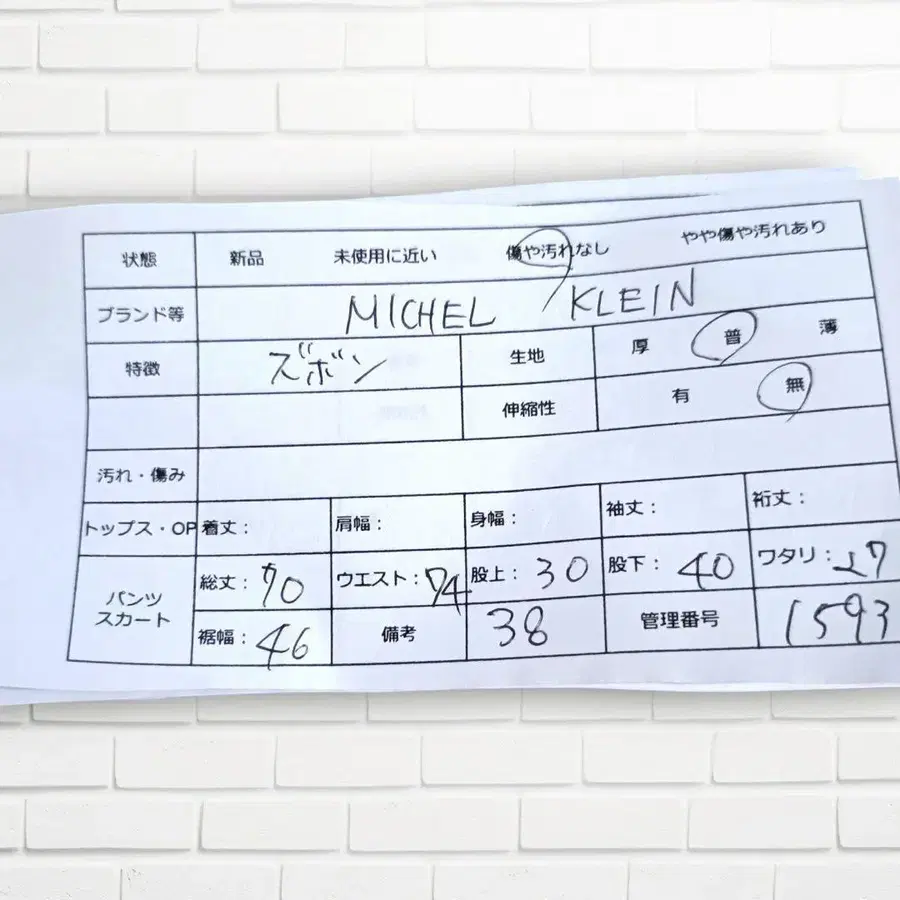 状態 新品 未使用に近い 傷や汚れなし やや傷や汚れあり
ブランド等 MICHEL KLEIN
特徴 ズボン 生地 厚 普 薄
伸縮性 有 無
汚れ・傷み
トップス・OP 着丈: 肩幅: 身幅: 袖丈: 裄丈:
パンツ
スカート
総丈: 70 ウエスト: 74 股上: 30 股下: 40 ワタリ: 27
裾幅: 46 備考 38 管理番号 1593